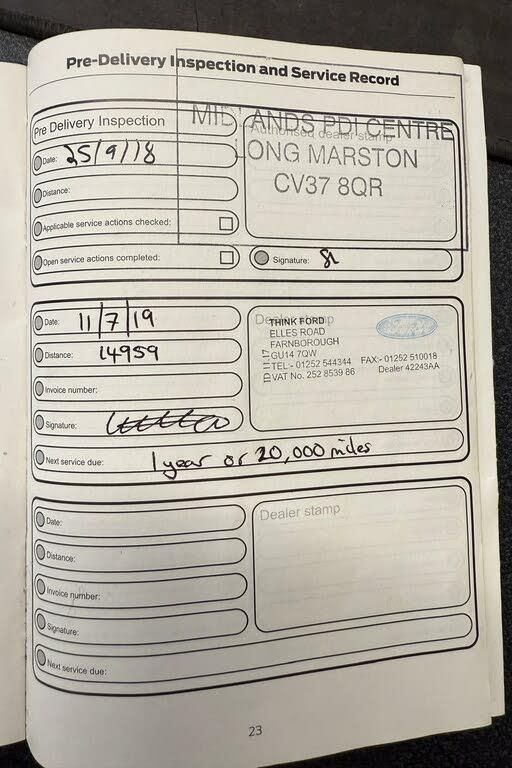 Pre-Delivery Inspection and Service Record
Pre Delivery Inspection
Date: 25/9/18
Distance:
Applicable service actions checked:
Open service actions completed:
Authorised dealer stamp
MIDLANDS PDI CENTRE
LONG MARSTON
CV37 8QR
Signature:
Date: 11/7/19
Distance: 14959
Invoice number:
Signature:
Next service due: 1 year or 20,000 miles
Dealer stamp
THINK FORD
ELLES ROAD
FARNBOROUGH
GU14 7QW
TEL:- 01252 544344 FAX:- 01252 510018
VAT No. 252 8539 86 Dealer 42243AA
ID 11.17
Ford
Date:
Distance:
Invoice number:
Signature:
Next service due:
Dealer stamp
23